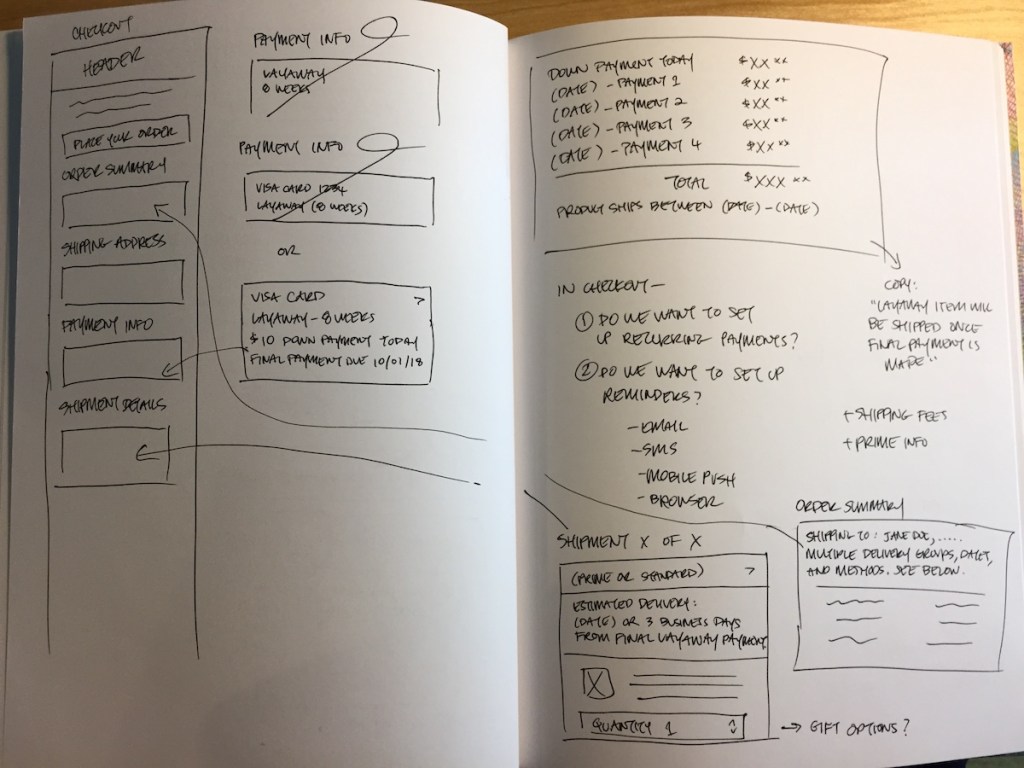 CHECKOUT
HEADER
PLACE YOUR ORDER
ORDER SUMMARY
SHIPPING ADDRESS
PAYMENT INFO
SHIPMENT DETAILS
PAYMENT INFO
LAYAWAY
8 WEEKS
PAYMENT INFO
VISA CARD 1234
LAYAWAY (8 WEEKS)
OR
VISA CARD >
LAYAWAY - 8 WEEKS
$10 DOWN PAYMENT TODAY
FINAL PAYMENT DUE 10/01/18
DOWN PAYMENT TODAY $XX XX
(DATE) - PAYMENT 1 $XX XX
(DATE) - PAYMENT 2 $XX XX
(DATE) - PAYMENT 3 $XX XX
(DATE) - PAYMENT 4 $XX XX
TOTAL $XXX XX
PRODUCT SHIPS BETWEEN (DATE) - (DATE)
COPY:
"LAYAWAY ITEM WILL
BE SHIPPED ONCE
FINAL PAYMENT IS
MADE"
+ SHIPPING FEES
+ PRIME INFO
IN CHECKOUT —
① DO WE WANT TO SET
UP RECURRING PAYMENTS?
② DO WE WANT TO SET UP
REMINDERS?
- EMAIL
- SMS
- MOBILE PUSH
- BROWSER
ORDER SUMMARY
SHIPPING TO: JANE DOE, .....
MULTIPLE DELIVERY GROUPS, DATES,
AND METHODS. SEE BELOW.
SHIPMENT X OF X
(PRIME OR STANDARD) >
ESTIMATED DELIVERY:
(DATE) OR 3 BUSINESS DAYS
FROM FINAL LAYAWAY PAYMENT
QUANTITY 1
→ GIFT OPTIONS?